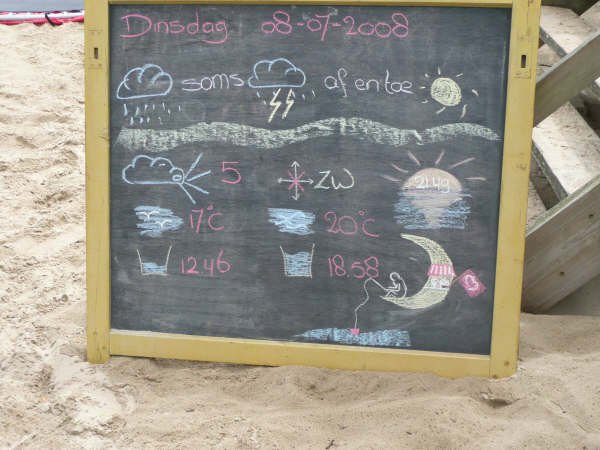 Dinsdag 08-07-2008
soms af en toe
5 ZW 21.49
17°C 20°C
12.46 18.58